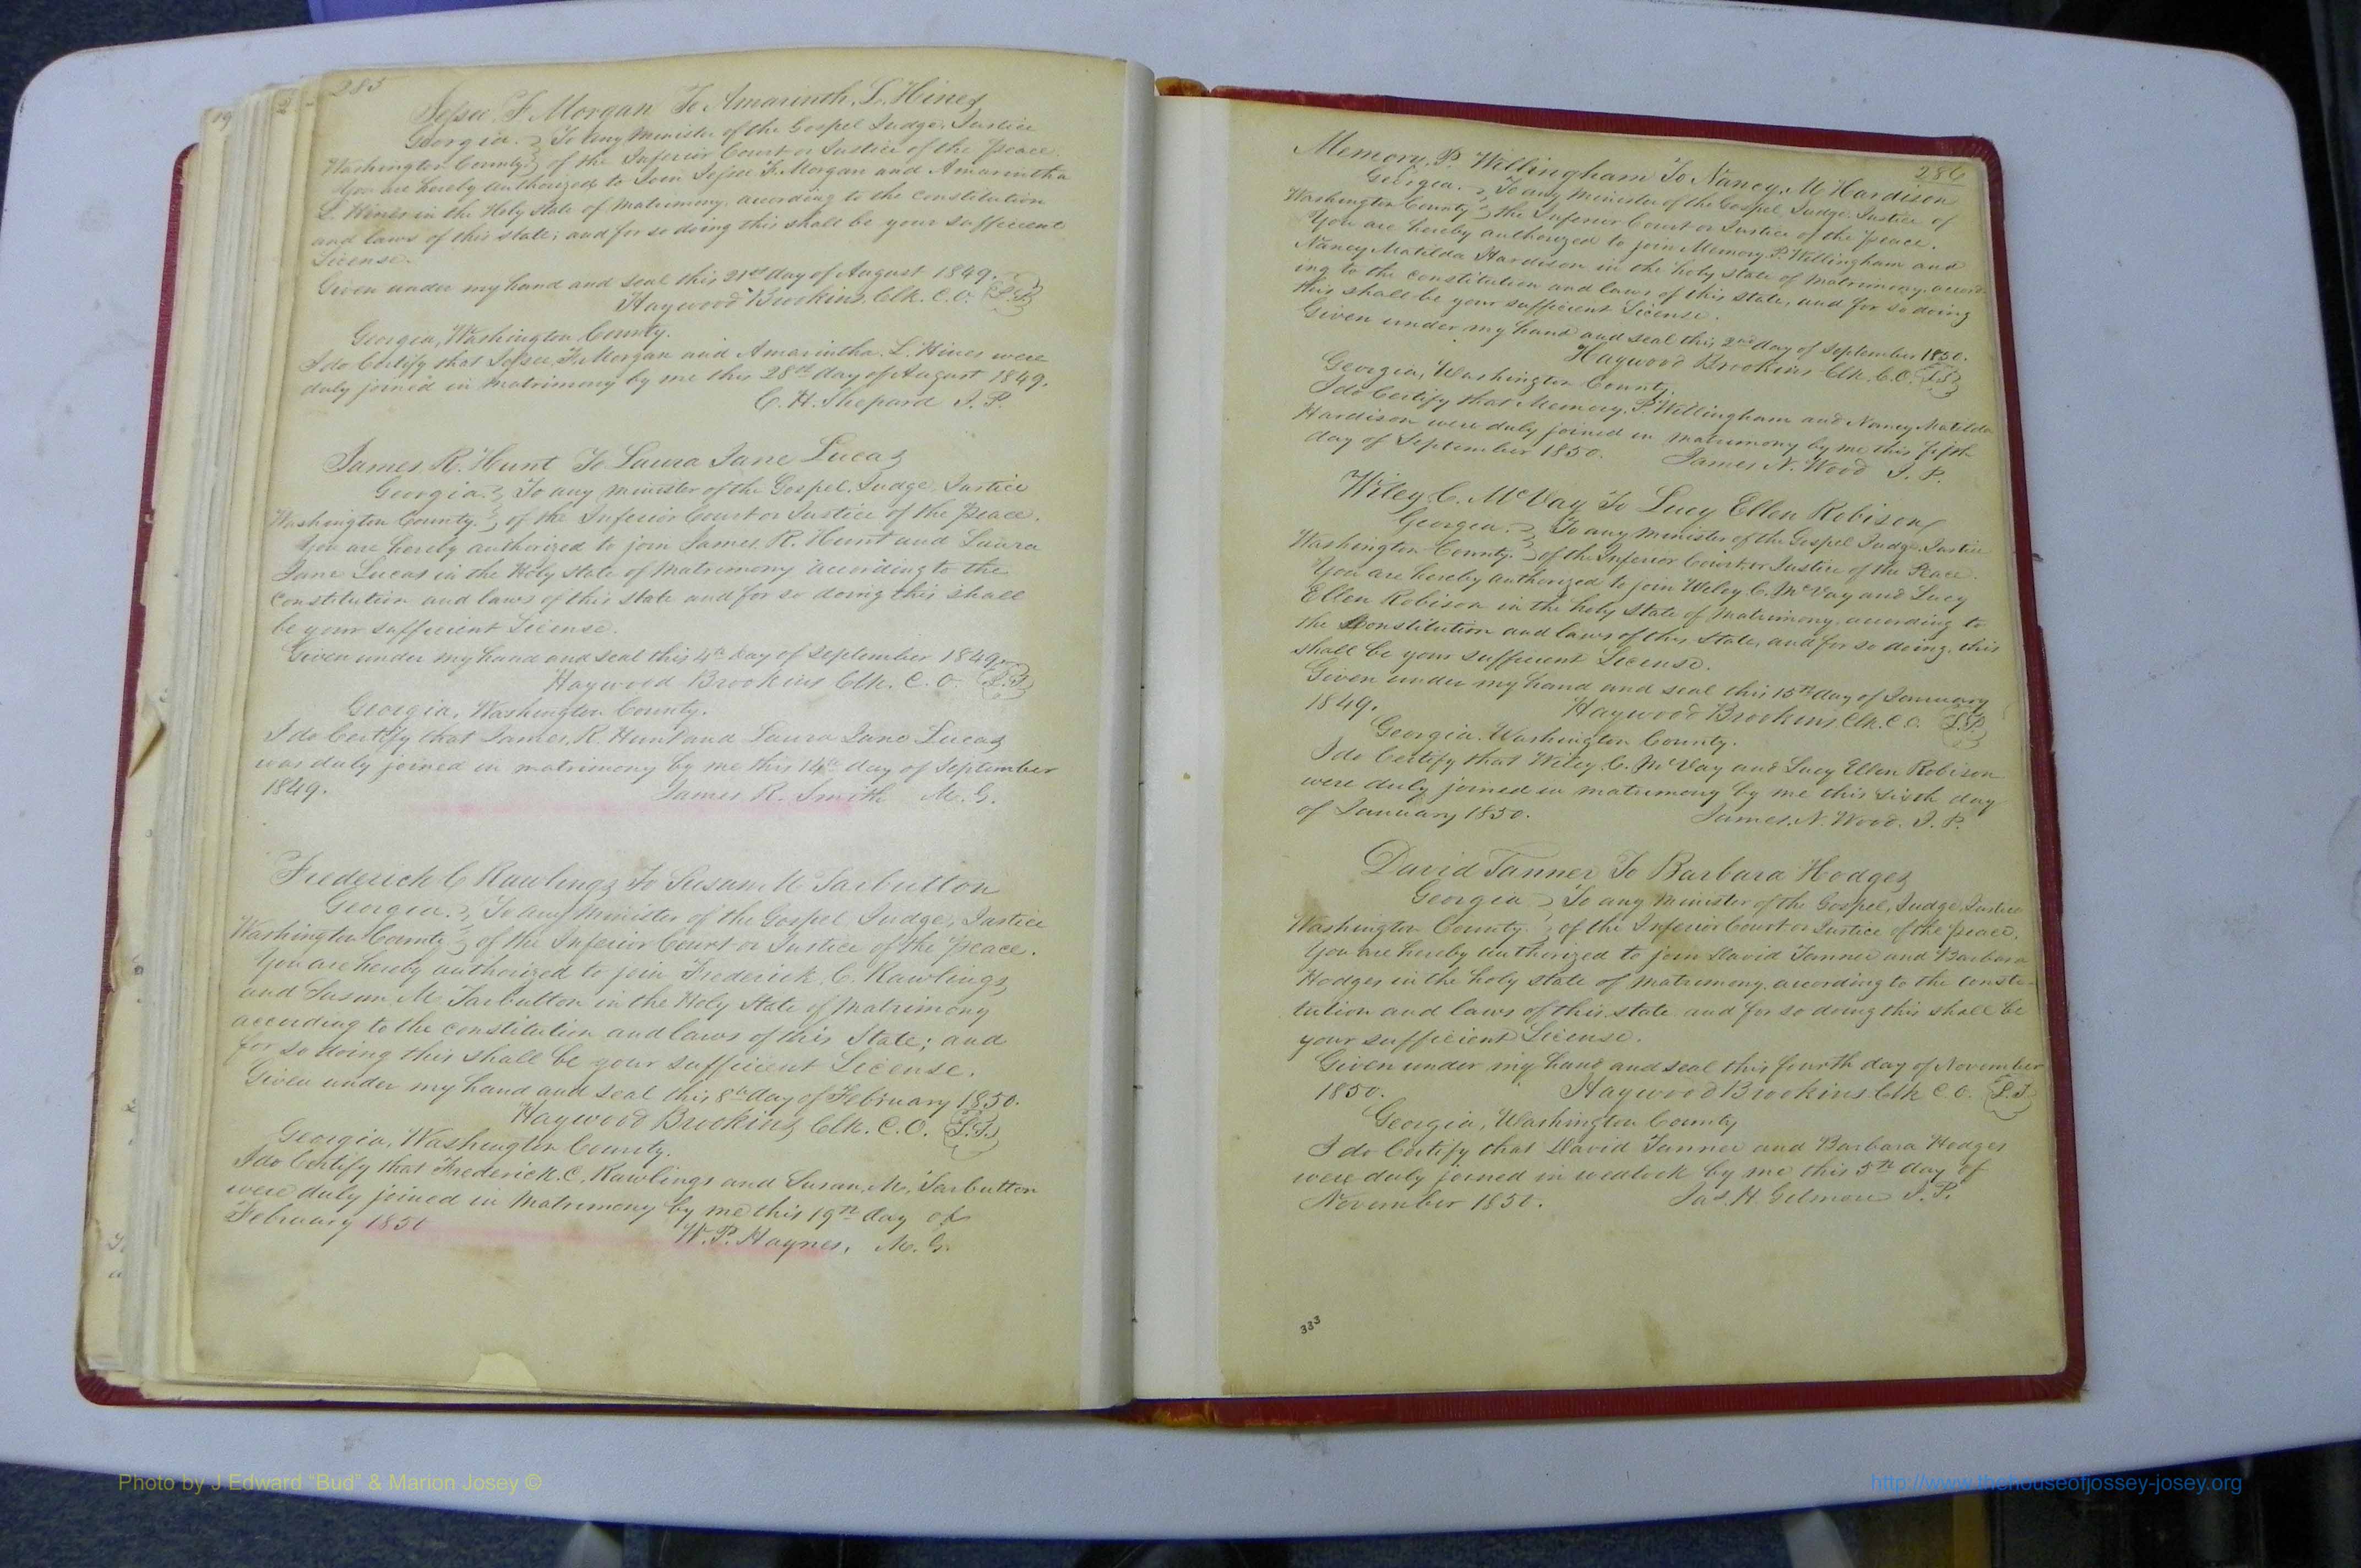 285
Jesse F. Morgan To Amarinth. L. Hines
Georgia. To any Minister of the Gospel Judge, Justice
Washington County. of the Inferior Court or Justice of the peace.
You are hereby authorized to Join Jesse F. Morgan and Amarintha
L. Hines in the Holy State of Matrimony, according to the Constitution
and laws of this state; and for so doing this shall be your sufficient
License.
Given under my hand and seal this 21st day of August 1849.
Haywood Brookins Clk. C.O. L.S.
Georgia, Washington County.
I do Certify that Jesse F. Morgan and Amarintha. L. Hines were
duly joined in matrimony by me this 28th day of August 1849.
C. H. Shepard J. P.
James R. Hunt To Laura Jane Lucas
Georgia. To any minister of the Gospel. Judge, Justice
Washington County. of the Inferior Court or Justice of the peace.
You are hereby authorized to join James. R. Hunt and Laura
Jane Lucas in the Holy State of Matrimony according to the
Constitution and laws of this state and for so doing this shall
be your sufficient License.
Given under my hand and seal this 4th day of September 1849.
Haywood Brookins Clk. C.O. L.S.
Georgia, Washington County.
I do Certify that James. R. Hunt and Laura Jane Lucas
was duly joined in matrimony by me this 14th day of September
1849. James R. Smith M. G.
Frederick C Rawlings To Susan M Tarbutton
Georgia. To any Minister of the Gospel Judge, Justice
Washington County of the Inferior Court or Justice of the peace.
You are hereby authorized to join Frederick. C. Rawlings
and Susan M Tarbutton in the Holy State of Matrimony
according to the constitution and laws of this State; and
for so doing this shall be your sufficient License.
Given under my hand and seal this 8th day of February 1850.
Haywood Brookins Clk. C.O. L.S.
Georgia, Washington County.
I do Certify that Frederick. C. Rawlings and Susan. M. Tarbutton
were duly joined in Matrimony by me this 19th day of
February 1850 W. P. Haynes, M. G.
286
Memory. P. Willingham To Nancy. M Hardison
Georgia. To any Minister of the Gospel Judge. Justice of
Washington County the Inferior Court or Justice of the peace.
You are hereby authorized to join Memory. P. Willingham and
Nancy Matilda Hardison in the holy state of Matrimony. accord-
ing to the constitution and laws of this state, and for so doing
this shall be your sufficient License.
Given under my hand and seal this 2nd day of September 1850.
Haywood Brookins Clk. C.O. L.S.
Georgia, Washington County.
I do Certify that Memory. P. Willingham and Nancy Matilda
Hardison were duly joined in matrimony by me this fifth
day of September 1850. James N. Wood J. P.
Wiley. C. McVay To Lucy Ellen Robison
Georgia. To any minister of the Gospel Judge, Justice
Washington County. of the Inferior Court or Justice of the Peace.
You are hereby authorized to join Wiley. C. McVay and Lucy
Ellen Robison in the holy state of Matrimony, according to
the Constitution and laws of this state, and for so doing, this
shall be your sufficient License.
Given under my hand and seal this 15th day of January
1849. Haywood Brookins. Clk. C.O. L.S.
Georgia. Washington County.
I do Certify that Wiley. C. McVay and Lucy Ellen Robison
were duly joined in matrimony by me this sixth day
of January 1850. James. N. Wood. J. P.
David Tanner To Barbara Hodges
Georgia To any Minister of the Gospel, Judge Justice
Washington County. of the Inferior Court or Justice of the peace.
You are hereby authorized to join David Tanner and Barbara
Hodges in the holy state of Matrimony, according to the consti-
tution and laws of this state and for so doing this shall be
your sufficient License.
Given under my hand and seal this fourth day of November
1850. Haywood Brookins Clk C.O. L.S.
Georgia, Washington County
I do Certify that David Tanner and Barbara Hodges
were duly joined in wedlock by me this 5th day of
November 1850. Jas. H. Gilmore J. P.
333
Photo by J Edward "Bud" & Marion Josey ©
http://www.thehouseofjossey-josey.org